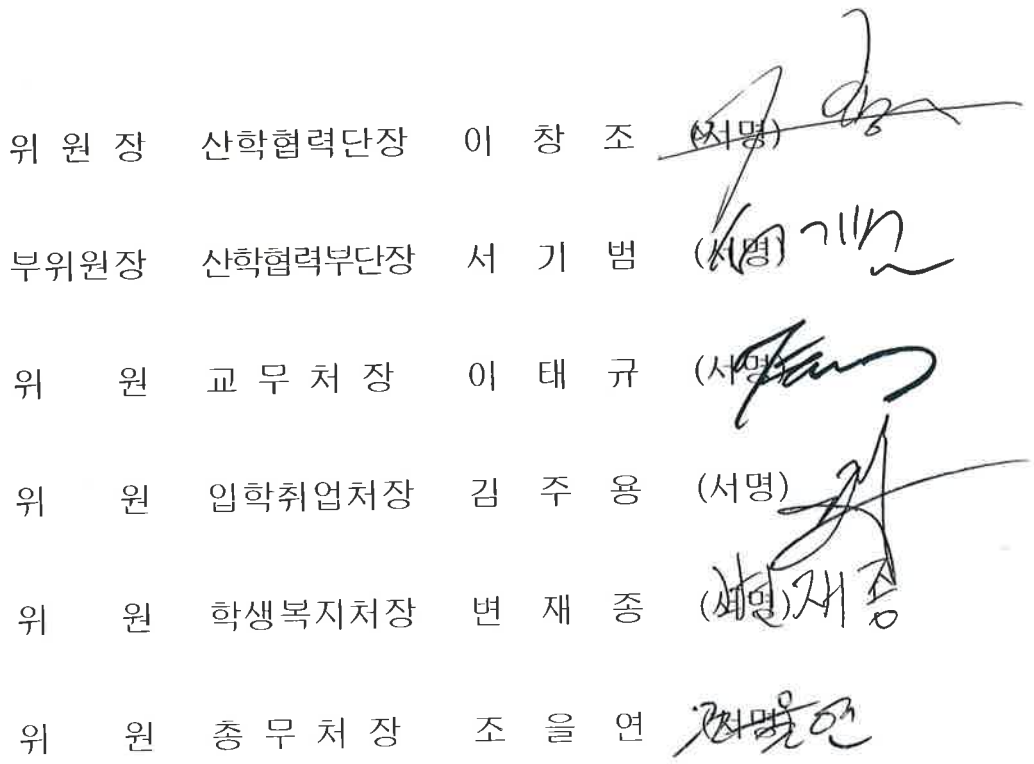 위 원 장 산학협력단장 이 창 조 (서명)
부위원장 산학협력부단장 서 기 범 (서명) 서기범
위 원 교 무 처 장 이 태 규 (서명)
위 원 입학취업처장 김 주 용 (서명)
위 원 학생복지처장 변 재 종 (서명) 변재종
위 원 총 무 처 장 조 을 연 (서명) 조을연